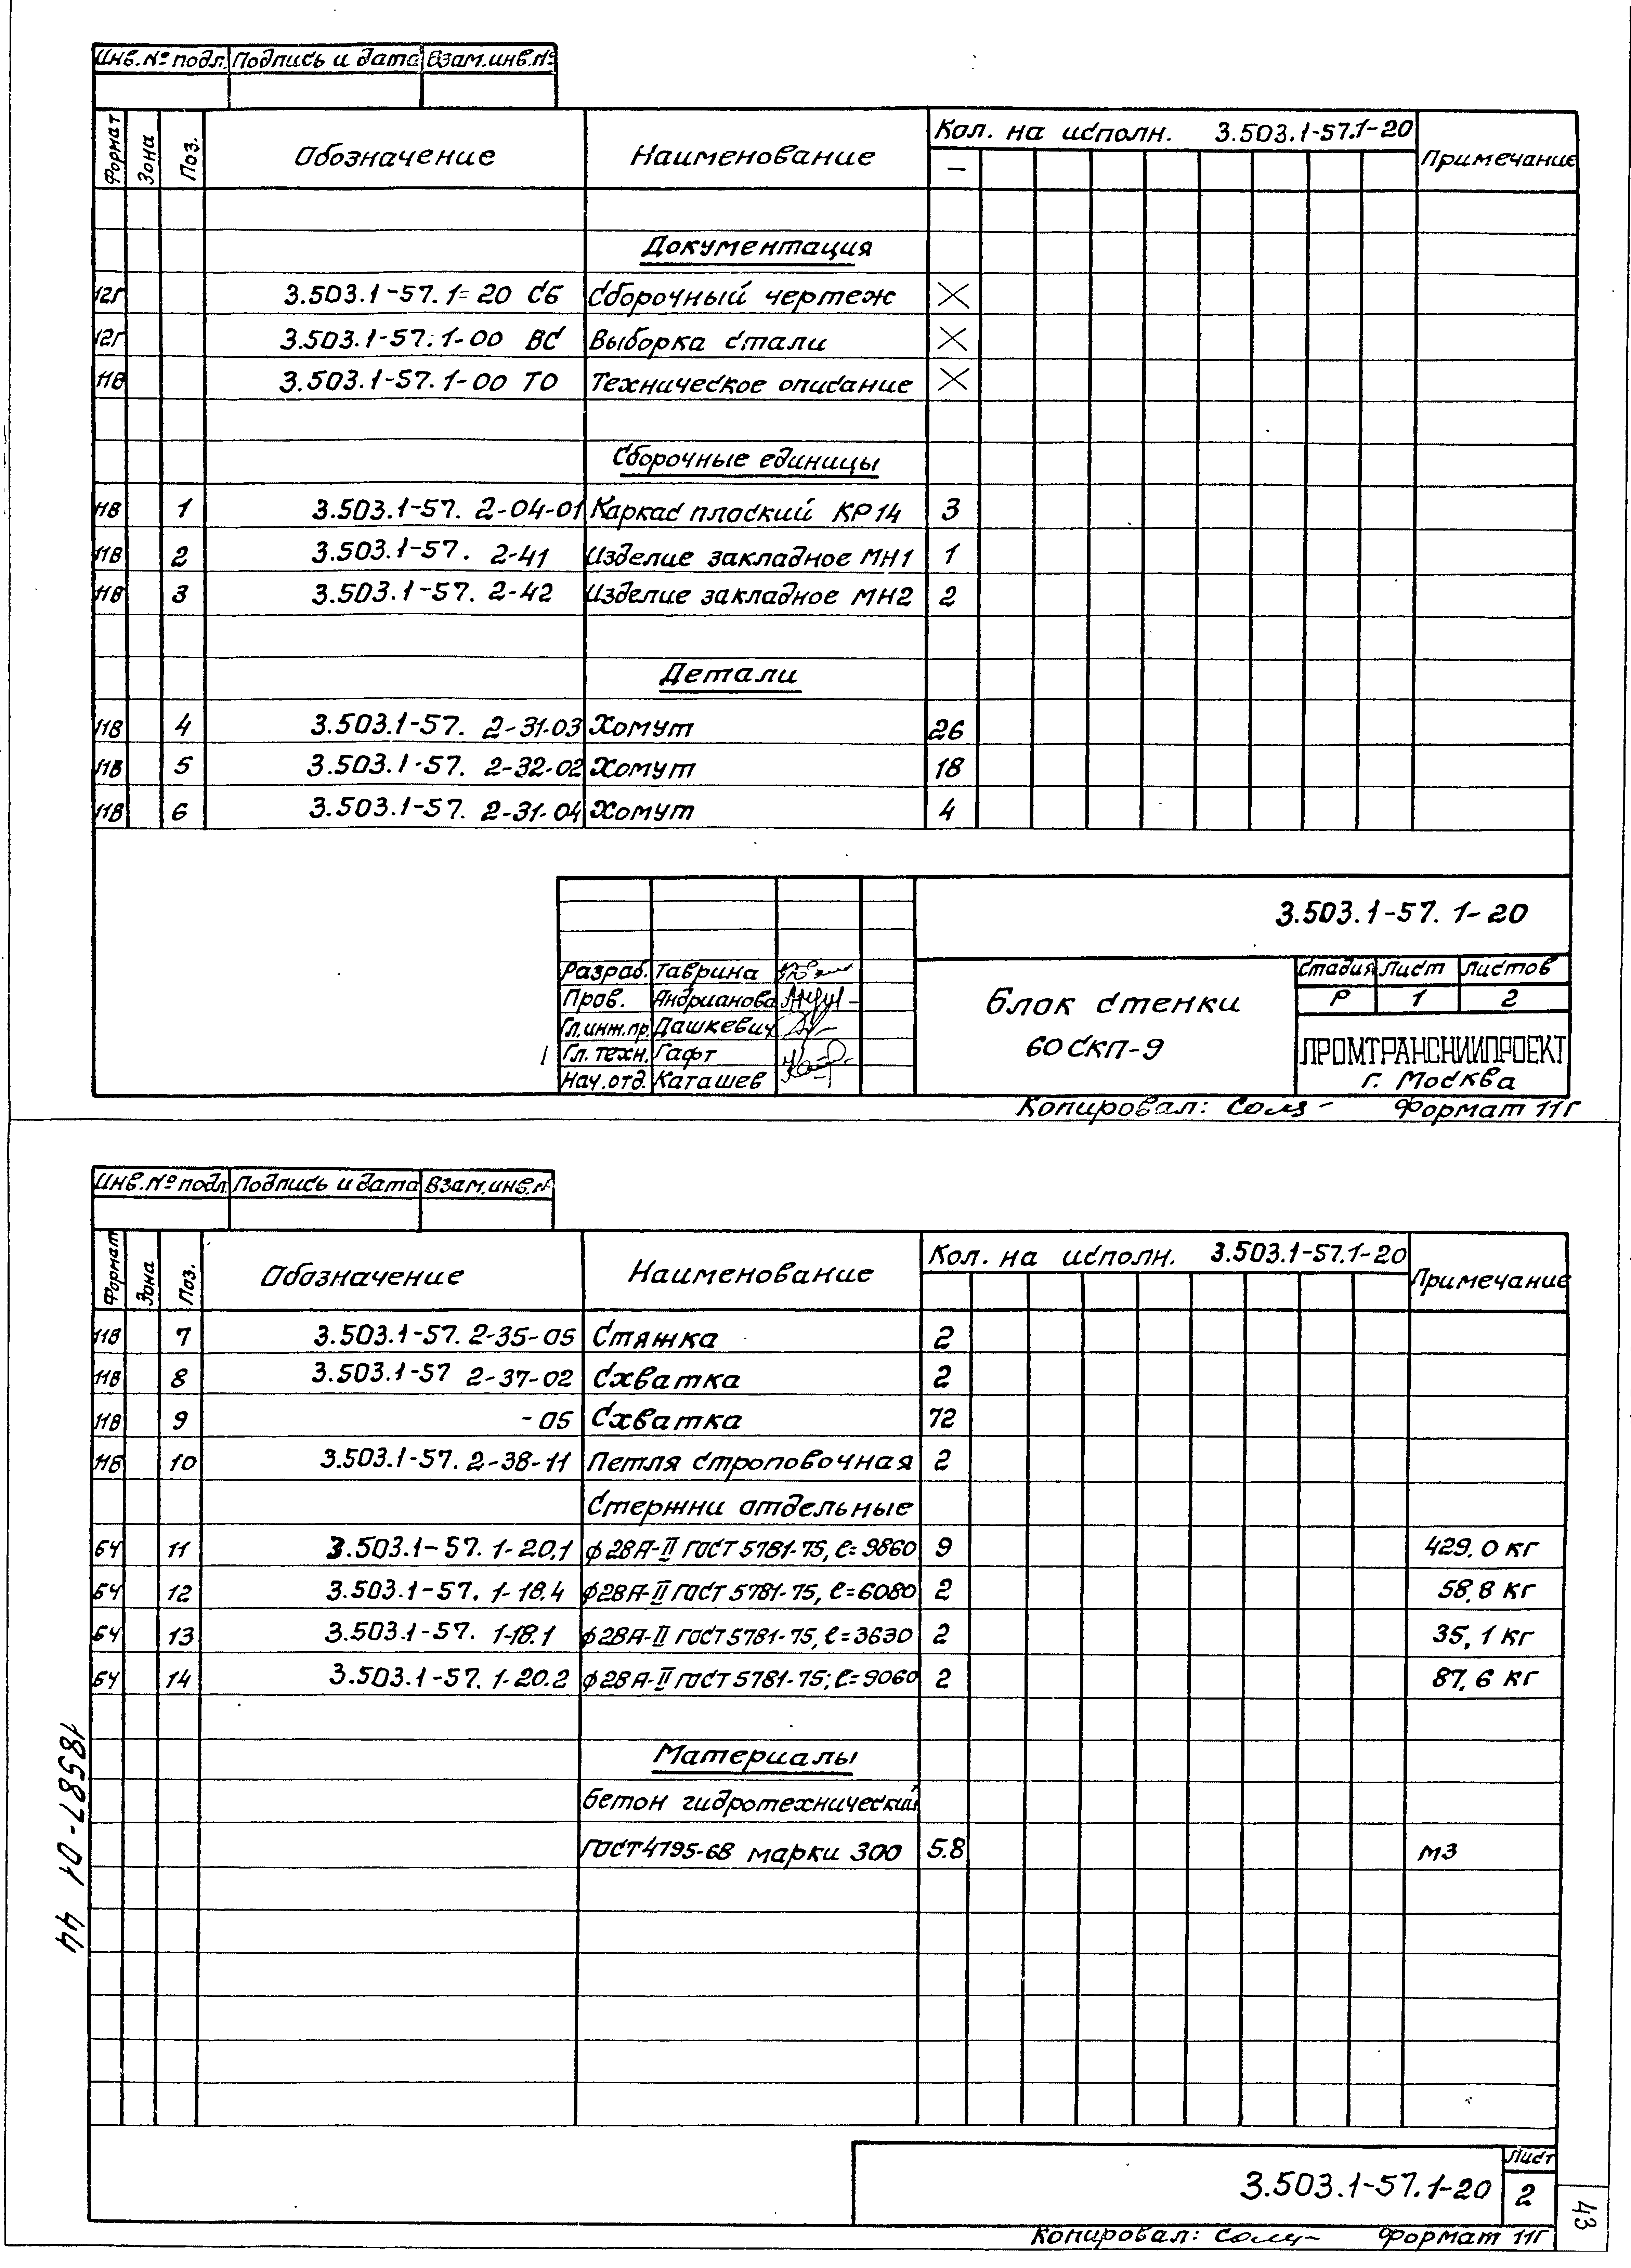 Инв.№ подл. Подпись и дата Взам.инв.№
Формат Зона Поз. Обозначение Наименование Кол. на исполн. 3.503.1-57.1-20 Примечание
–
Документация
12Г 3.503.1-57.1-20 СБ Сборочный чертеж X
12Г 3.503.1-57.1-00 ВС Выборка стали X
11В 3.503.1-57.1-00 ТО Техническое описание X
Сборочные единицы
11В 1 3.503.1-57. 2-04-01 Каркас плоский КР14 3
11В 2 3.503.1-57. 2-41 Изделие закладное МН1 1
11В 3 3.503.1-57. 2-42 Изделие закладное МН2 2
Детали
11В 4 3.503.1-57. 2-31-03 Хомут 26
11В 5 3.503.1-57. 2-32-02 Хомут 18
11В 6 3.503.1-57. 2-31-04 Хомут 4
3.503.1-57. 1-20
Разраб. Таврина
Пров. Андрианова
Гл.инж.пр. Дашкевич
Гл. техн. Гафт
Нач.отд. Каташев
Блок стенки
60СКП-9
Стадия Лист Листов
Р 1 2
ПРОМТРАНСНИИПРОЕКТ
г. Москва
Копировал: Формат 11Г
Инв.№ подл. Подпись и дата Взам.инв.№
Формат Зона Поз. Обозначение Наименование Кол. на исполн. 3.503.1-57.1-20 Примечание
11В 7 3.503.1-57. 2-35-05 Стяжка 2
11В 8 3.503.1-57 2-37-02 Схватка 2
11В 9 -05 Схватка 72
11Б 10 3.503.1-57. 2-38-11 Петля строповочная 2
Стержни отдельные
БЧ 11 3.503.1-57. 1-20.1 ϕ28А-II ГОСТ 5781-75, ℓ=9860 9 429,0 кг
БЧ 12 3.503.1-57. 1-18.4 ϕ28А-II ГОСТ 5781-75, ℓ=6080 2 58,8 кг
БЧ 13 3.503.1-57. 1-18.1 ϕ28А-II ГОСТ 5781-75, ℓ=3630 2 35,1 кг
БЧ 14 3.503.1-57. 1-20.2 ϕ28А-II ГОСТ 5781-75; ℓ=9060 2 87,6 кг
Материалы
Бетон гидротехнический
ГОСТ 4795-68 марки 300 5.8 м3
18587-01 44
3.503.1-57.1-20
Лист
2
43
Копировал: Формат 11Г